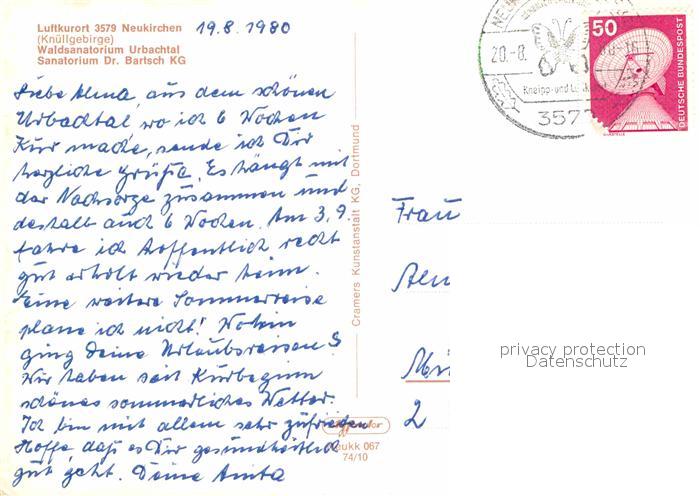 Luftkurort 3579 Neukirchen
(Knüllgebirge)
Waldsanatorium Urbachtal
Sanatorium Dr. Bartsch KG
19.8.1980
Liebe Alma, aus dem schönen
Urbachtal, wo ich 6 Wochen
Kur mache, sende ich Dir
herzliche Grüße. Es hängt mit
der Nachsorge zusammen und
deshalb auch 6 Wochen. Am 3.9.
fahre ich hoffentlich recht
gut erholt wieder heim.
Eine weitere Sommerreise
plane ich nicht! Wohin
ging Deine Urlaubsreisen?
Wir haben seit Kurbeginn
schönes sommerliches Wetter.
Ich bin mit allem sehr zufrieden
Hoffe, daß es Dir gesundheitlich
gut geht. Deine Anita
Cramers Kunstanstalt KG, Dortmund
eukk 067
74/10
20.-8.
Kneipp- und
357
50
DEUTSCHE BUNDESPOST
Frau
2
privacy protection
Datenschutz